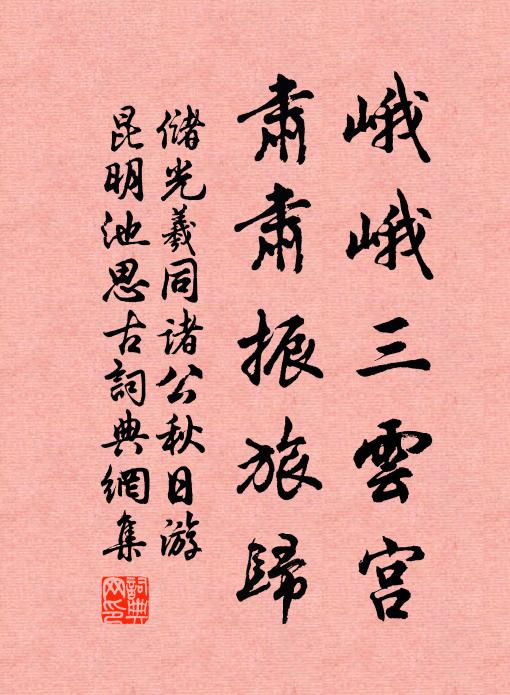 峨峨三雲宮
肅肅振旅歸
儲光羲同諸公秋日游
昆明池思古詞典網集
詞典網印